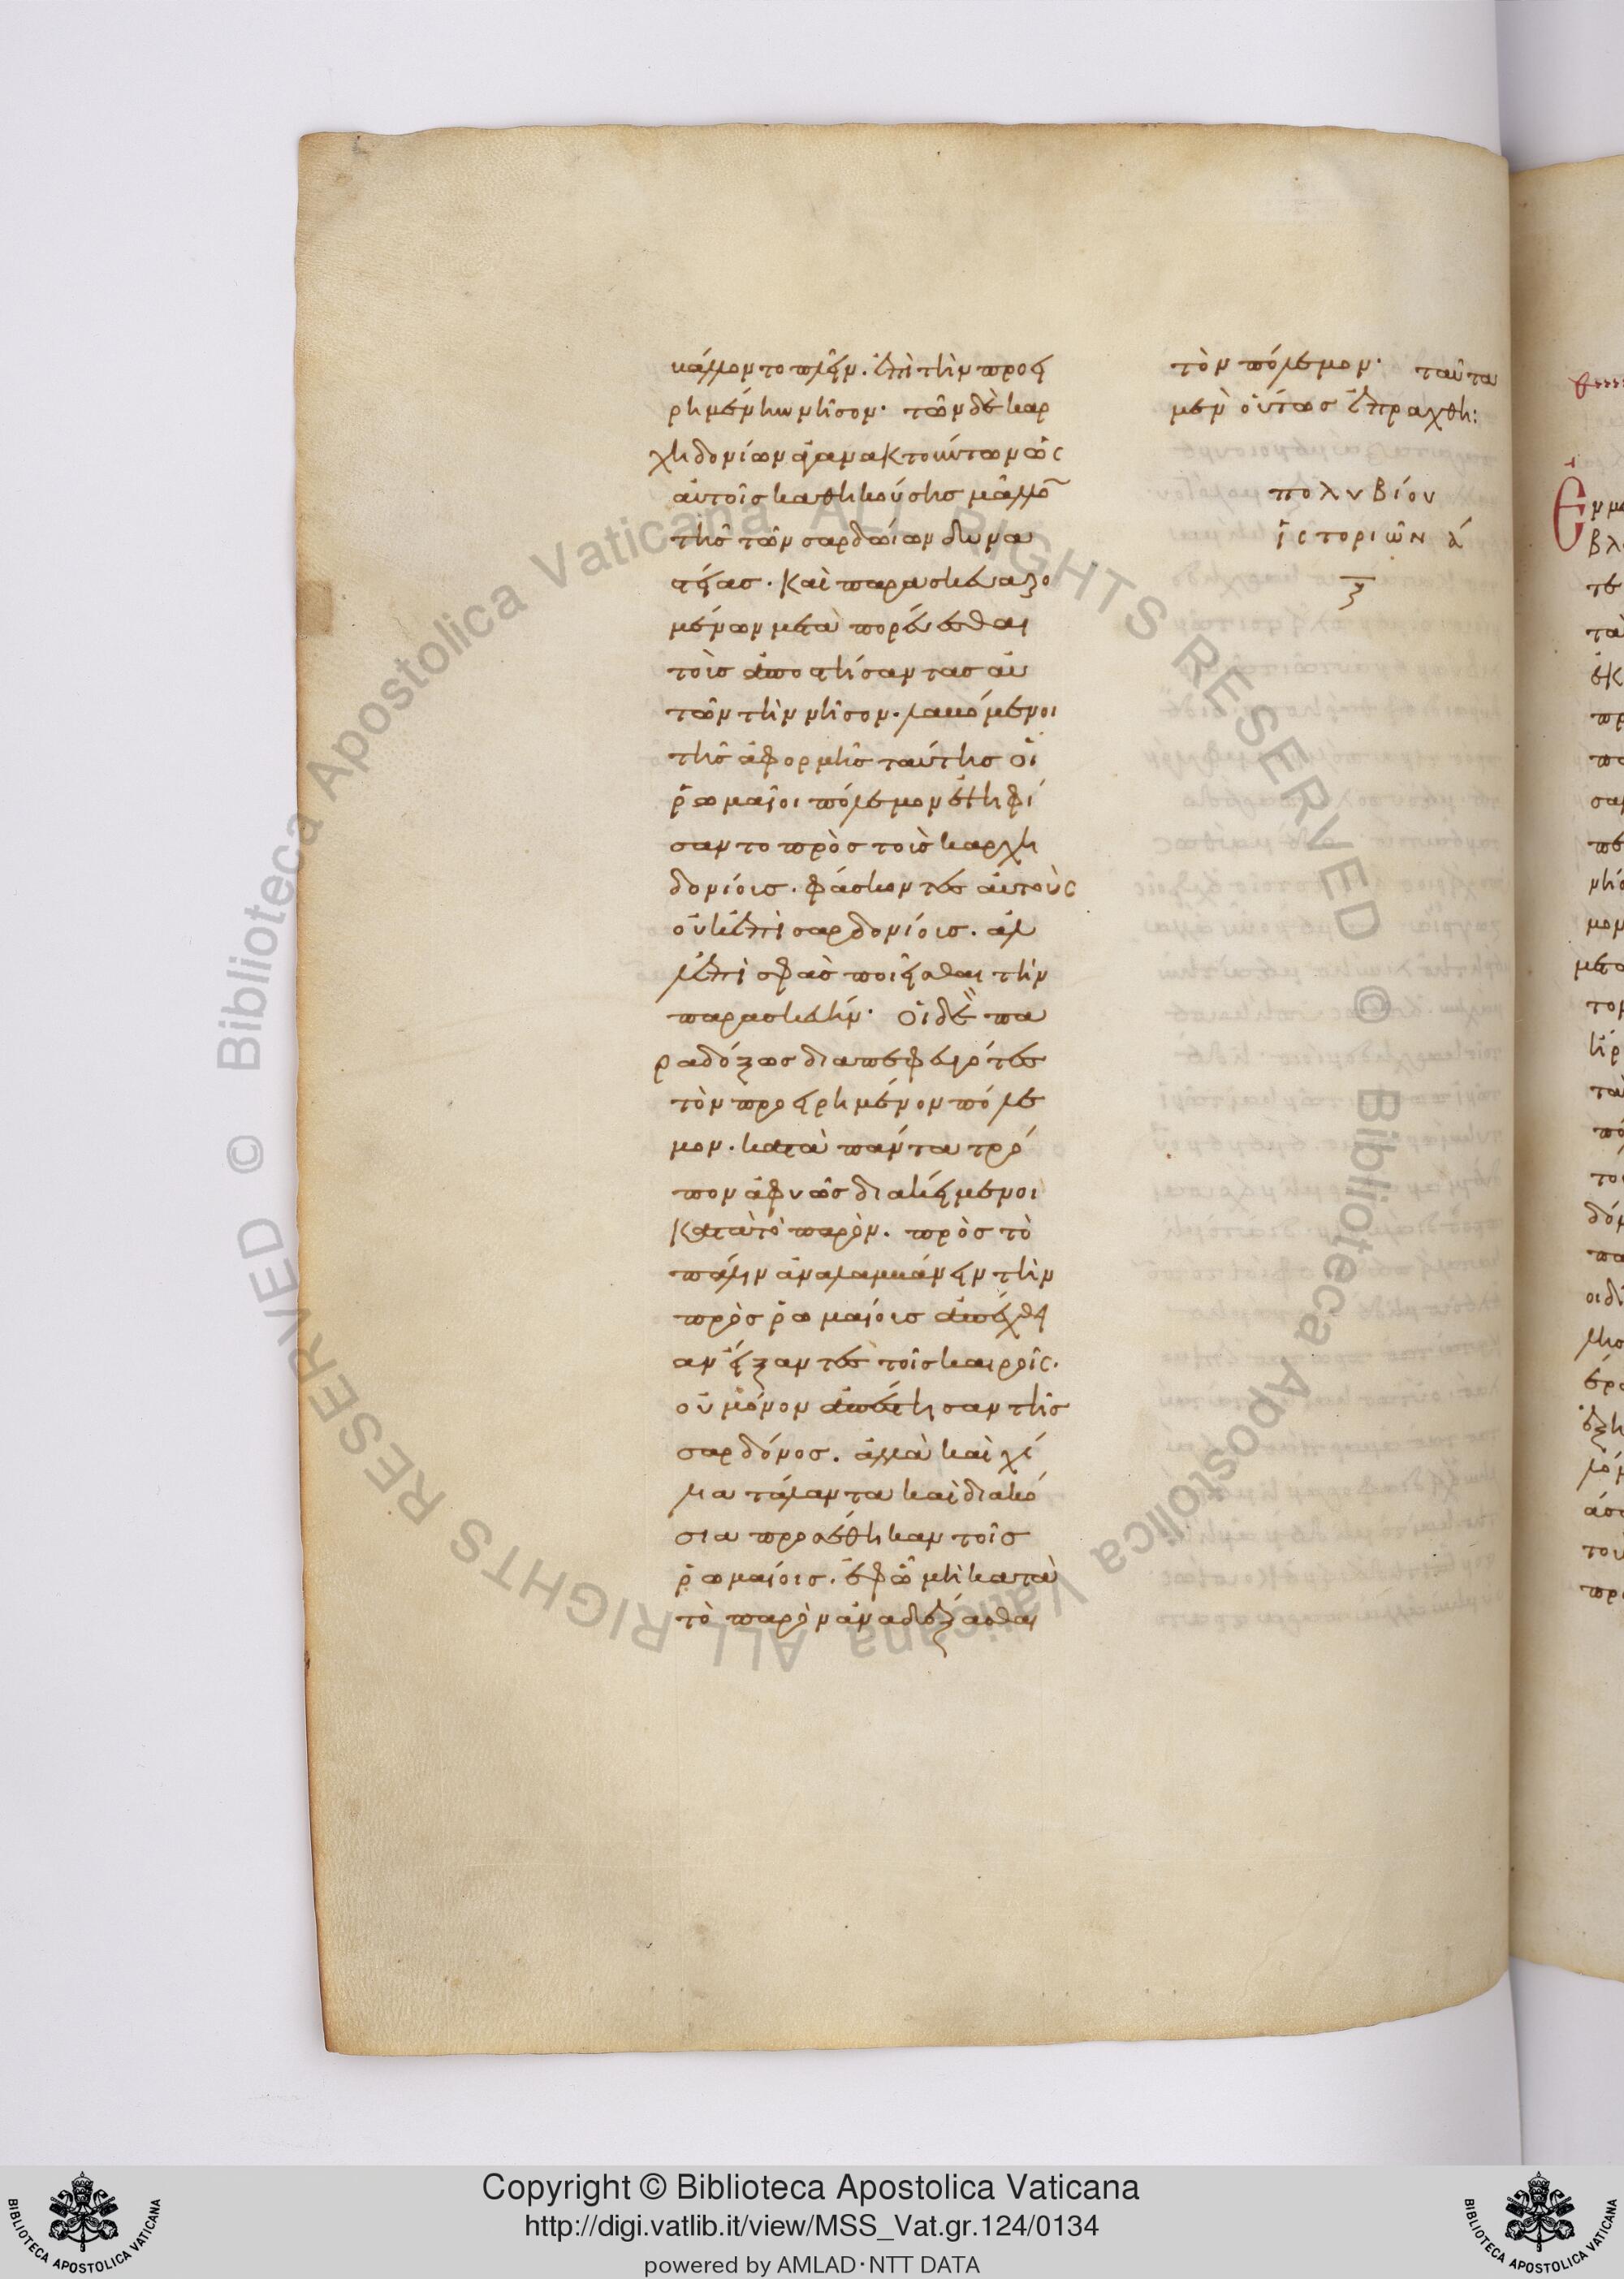 βάλλοντο πλεῖν. ἐπὶ τὴν προει
ρημένην νῆσον· τῶν δὲ καρ
χηδονίων ἀγανακτούντων ὡς
αὐτοῖς καθηκούσης μᾶλλο̅
τῆς τῶν σαρδωίων δυνα
στείας. καὶ παρασκευαζο
μένων μεταπορεύεσθαι
τοὺς ἀποστήσαντας αὐ
τῶν τὴν νῆσον. λαβόμενοι
τῆς ἀφορμῆς ταύτης οἱ
ῥωμαῖοι πόλεμον ἐψηφί
σαντο πρὸς τοὺς καρχη
δονίους. φάσκοντες αὐτοὺς
οὐκ ἐπὶ σαρδονίους. ἀλ
λ' ἐπὶ σφᾶς ποιεῖσθαι τὴν
παρασκευήν· οἱ δὲ πα
ραδόξως διαπεφευγότες
τὸν προειρημένον πόλε
μον. κατὰ πάντα τρό
πον ἀφυῶς διακείμενοι
κατὰ τὸ παρὸν. πρὸς τὸ
πάλιν ἀναλαμβάνειν τὴν
πρὸς ῥωμαίους ἀπέχθει
αν εἴξαντες τοῖς καιροῖς.
οὐ μόνον ἀπέστησαν τῆς
σαρδόνος. ἀλλὰ καὶ χί
λια τάλαντα καὶ διακό
σια προσέθηκαν τοῖς
ῥωμαίοις. ἐφ' ᾧ μὴ κατὰ
τὸ παρὸν ἀναδέξασθαι
τὸν πόλεμον· ταῦτα
μὲν οὕτως ἐπράχθη:
πολυβίου
ἱστοριῶν α
Copyright © Biblioteca Apostolica Vaticana
http://digi.vatlib.it/view/MSS_Vat.gr.124/0134
powered by AMLAD·NTT DATA